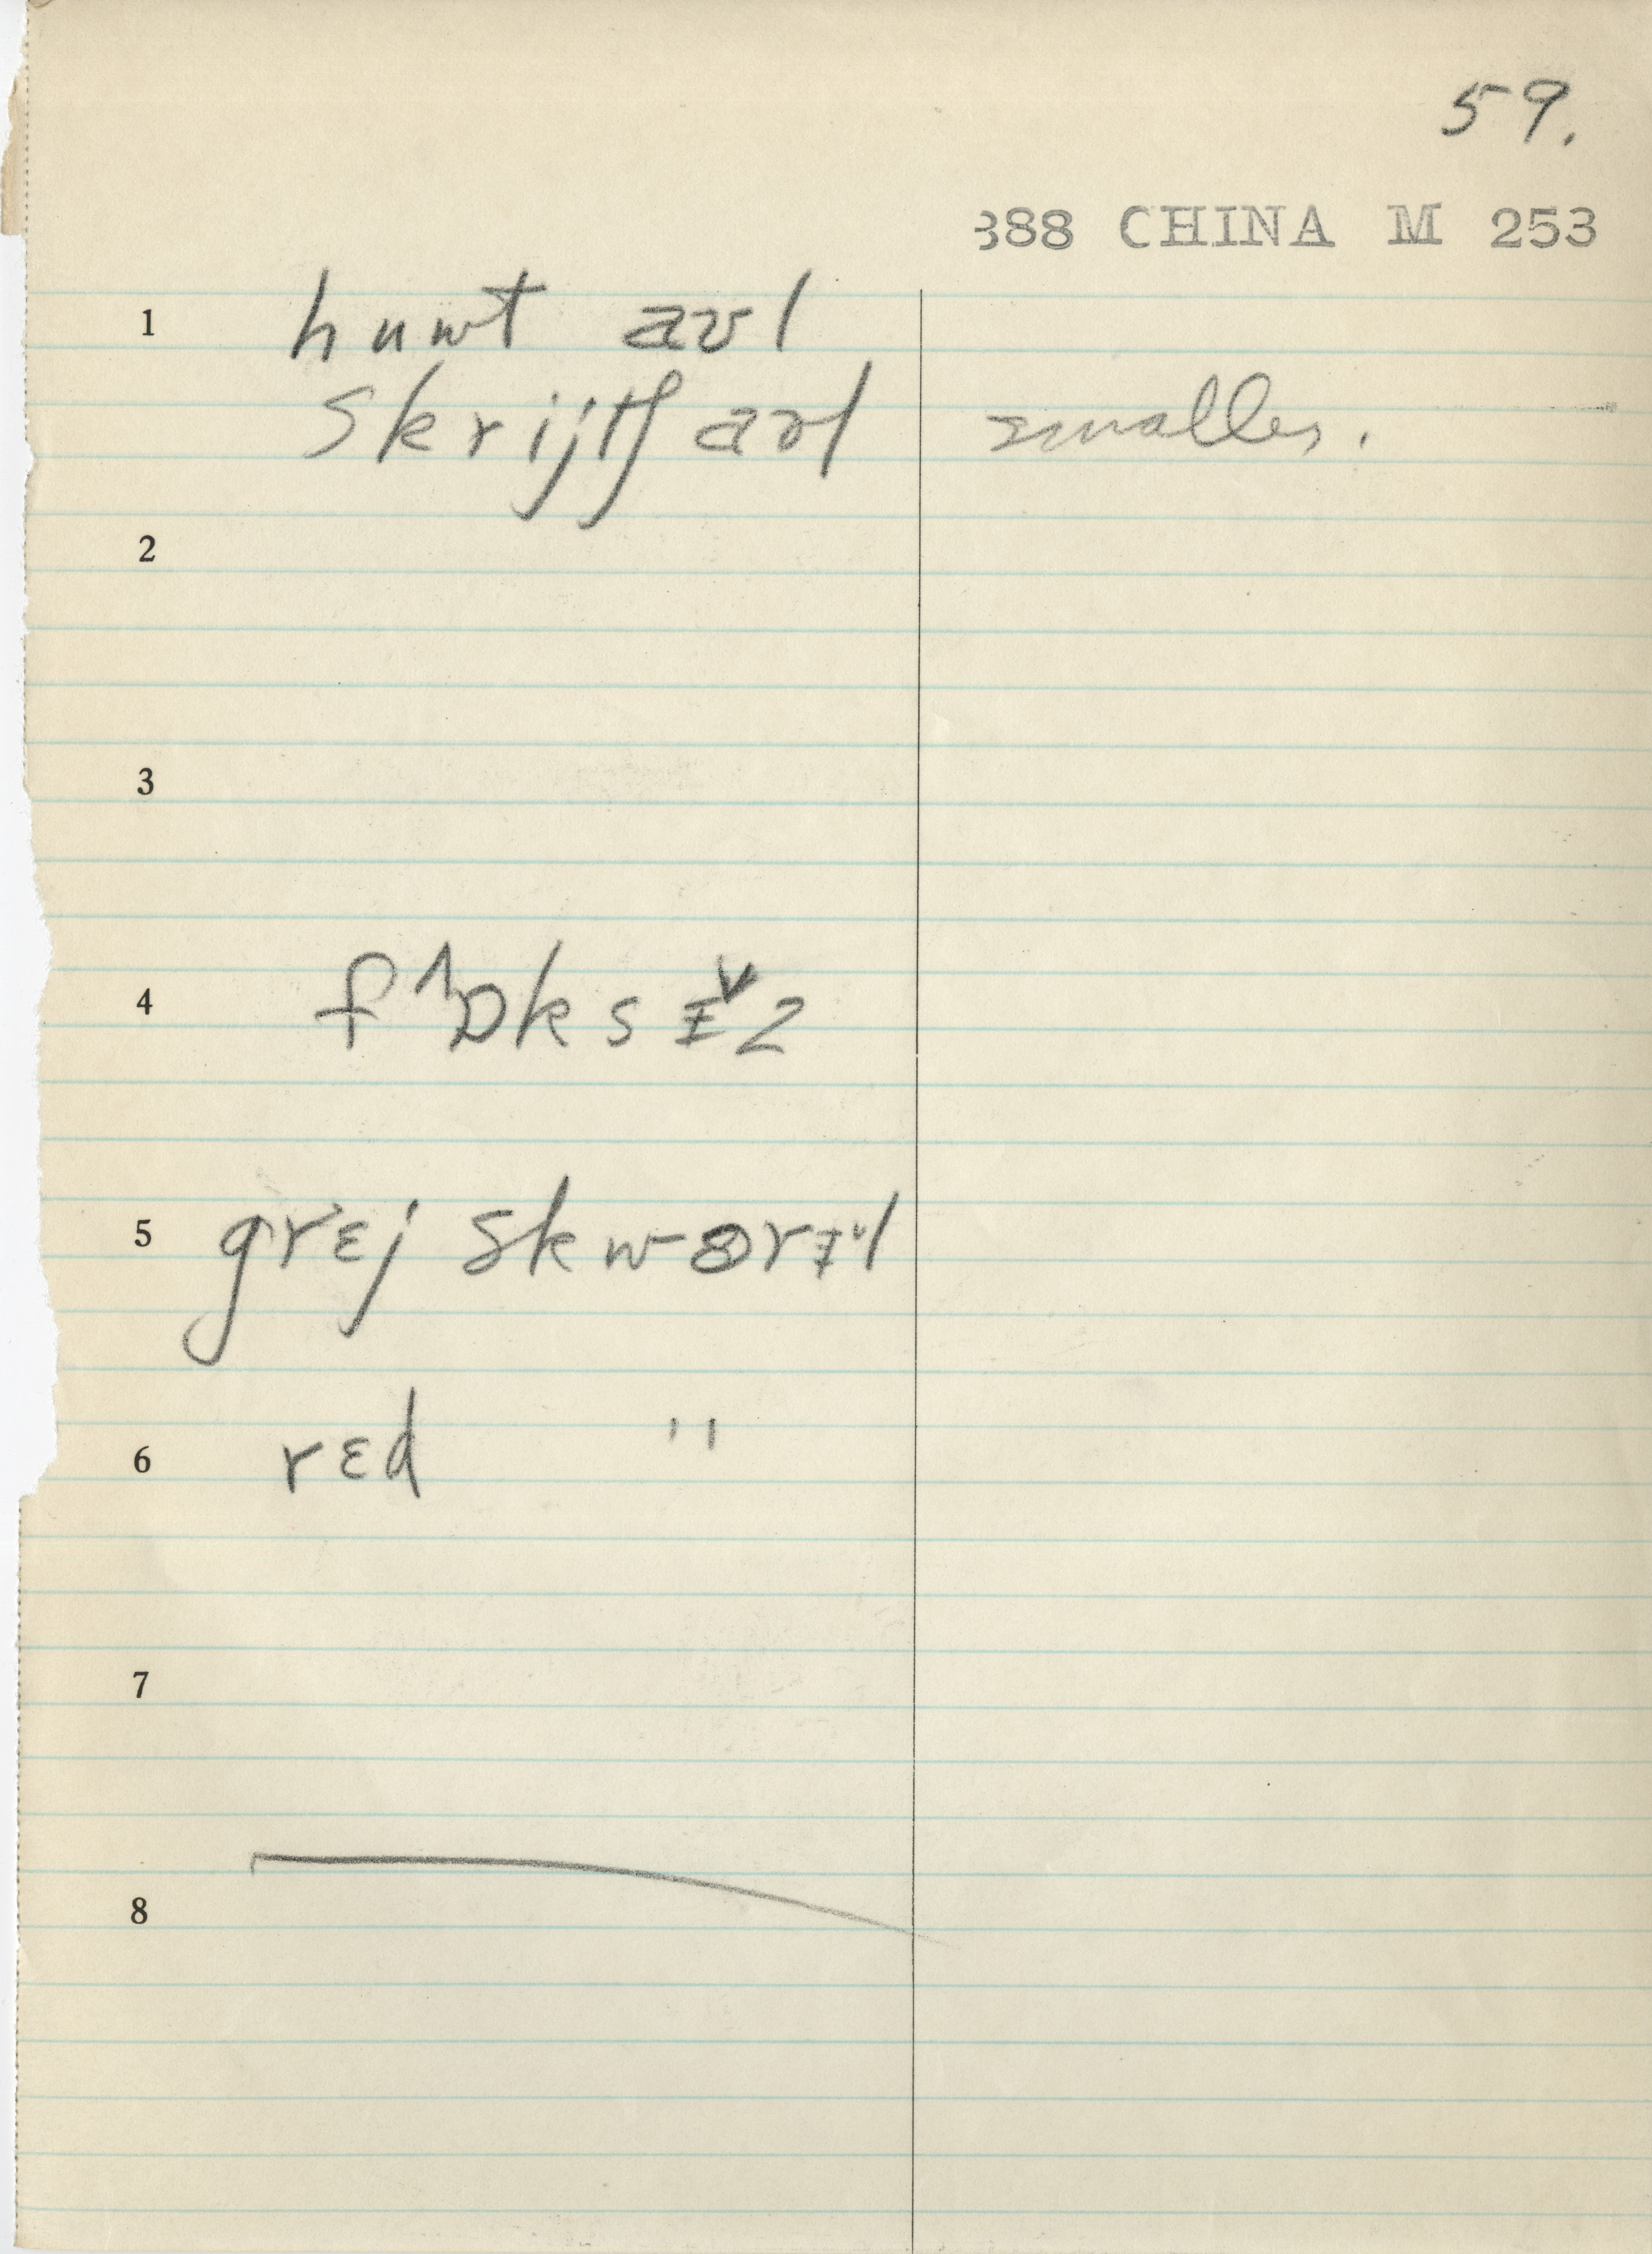 59.
388 CHINA M 253
1 huwt aʊl
skrijtʃ aʊl smaller.
2
3
4 fᶺɒksɨ̌z
5 grɛj skwɵrɨl
6 rɛd "
7
8